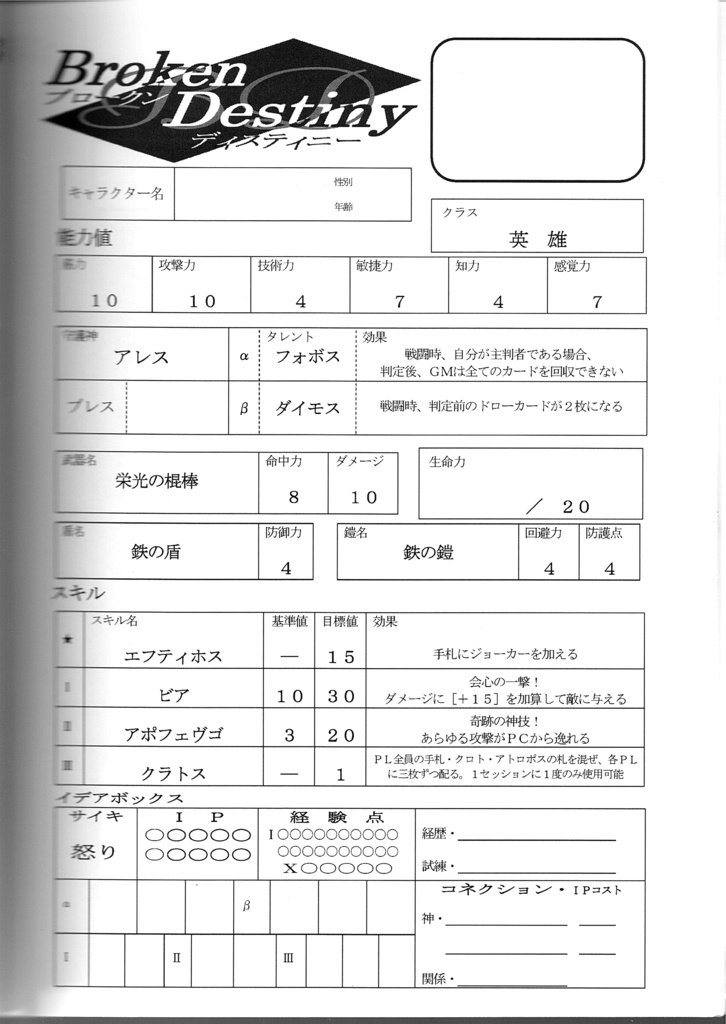 Broken
ブロークン
Destiny
ディスティニー
キャラクター名
性別
年齢
クラス
英 雄
能力値
筋力 攻撃力 技術力 敏捷力 知力 感覚力
10 10 4 7 4 7
守護神 タレント 効果
アレス α フォボス 戦闘時、自分が主判者である場合、
判定後、GMは全てのカードを回収できない
ブレス β ダイモス 戦闘時、判定前のドローカードが2枚になる
武器名 命中力 ダメージ 生命力
栄光の棍棒 8 10 / 20
盾名 防御力 鎧名 回避力 防護点
鉄の盾 4 鉄の鎧 4 4
スキル
スキル名 基準値 目標値 効果
★ エフティホス ― 15 手札にジョーカーを加える
Ⅰ ビア 10 30 会心の一撃!
ダメージに[+15]を加算して敵に与える
Ⅱ アポフェヴゴ 3 20 奇跡の神技!
あらゆる攻撃がPCから逸れる
Ⅲ クラトス ― 1 PL全員の手札・クロト・アトロポスの札を混ぜ、各PL
に三枚ずつ配る。1セッションに1度のみ使用可能
イデアボックス
サイキ IP 経 験 点
怒り ○○○○○ I○○○○○○○○○○
○○○○○ ○○○○○○○○○○
X○○○○○
経歴・
試練・
α β
コネクション・IPコスト
神・
Ⅰ Ⅱ Ⅲ
関係・